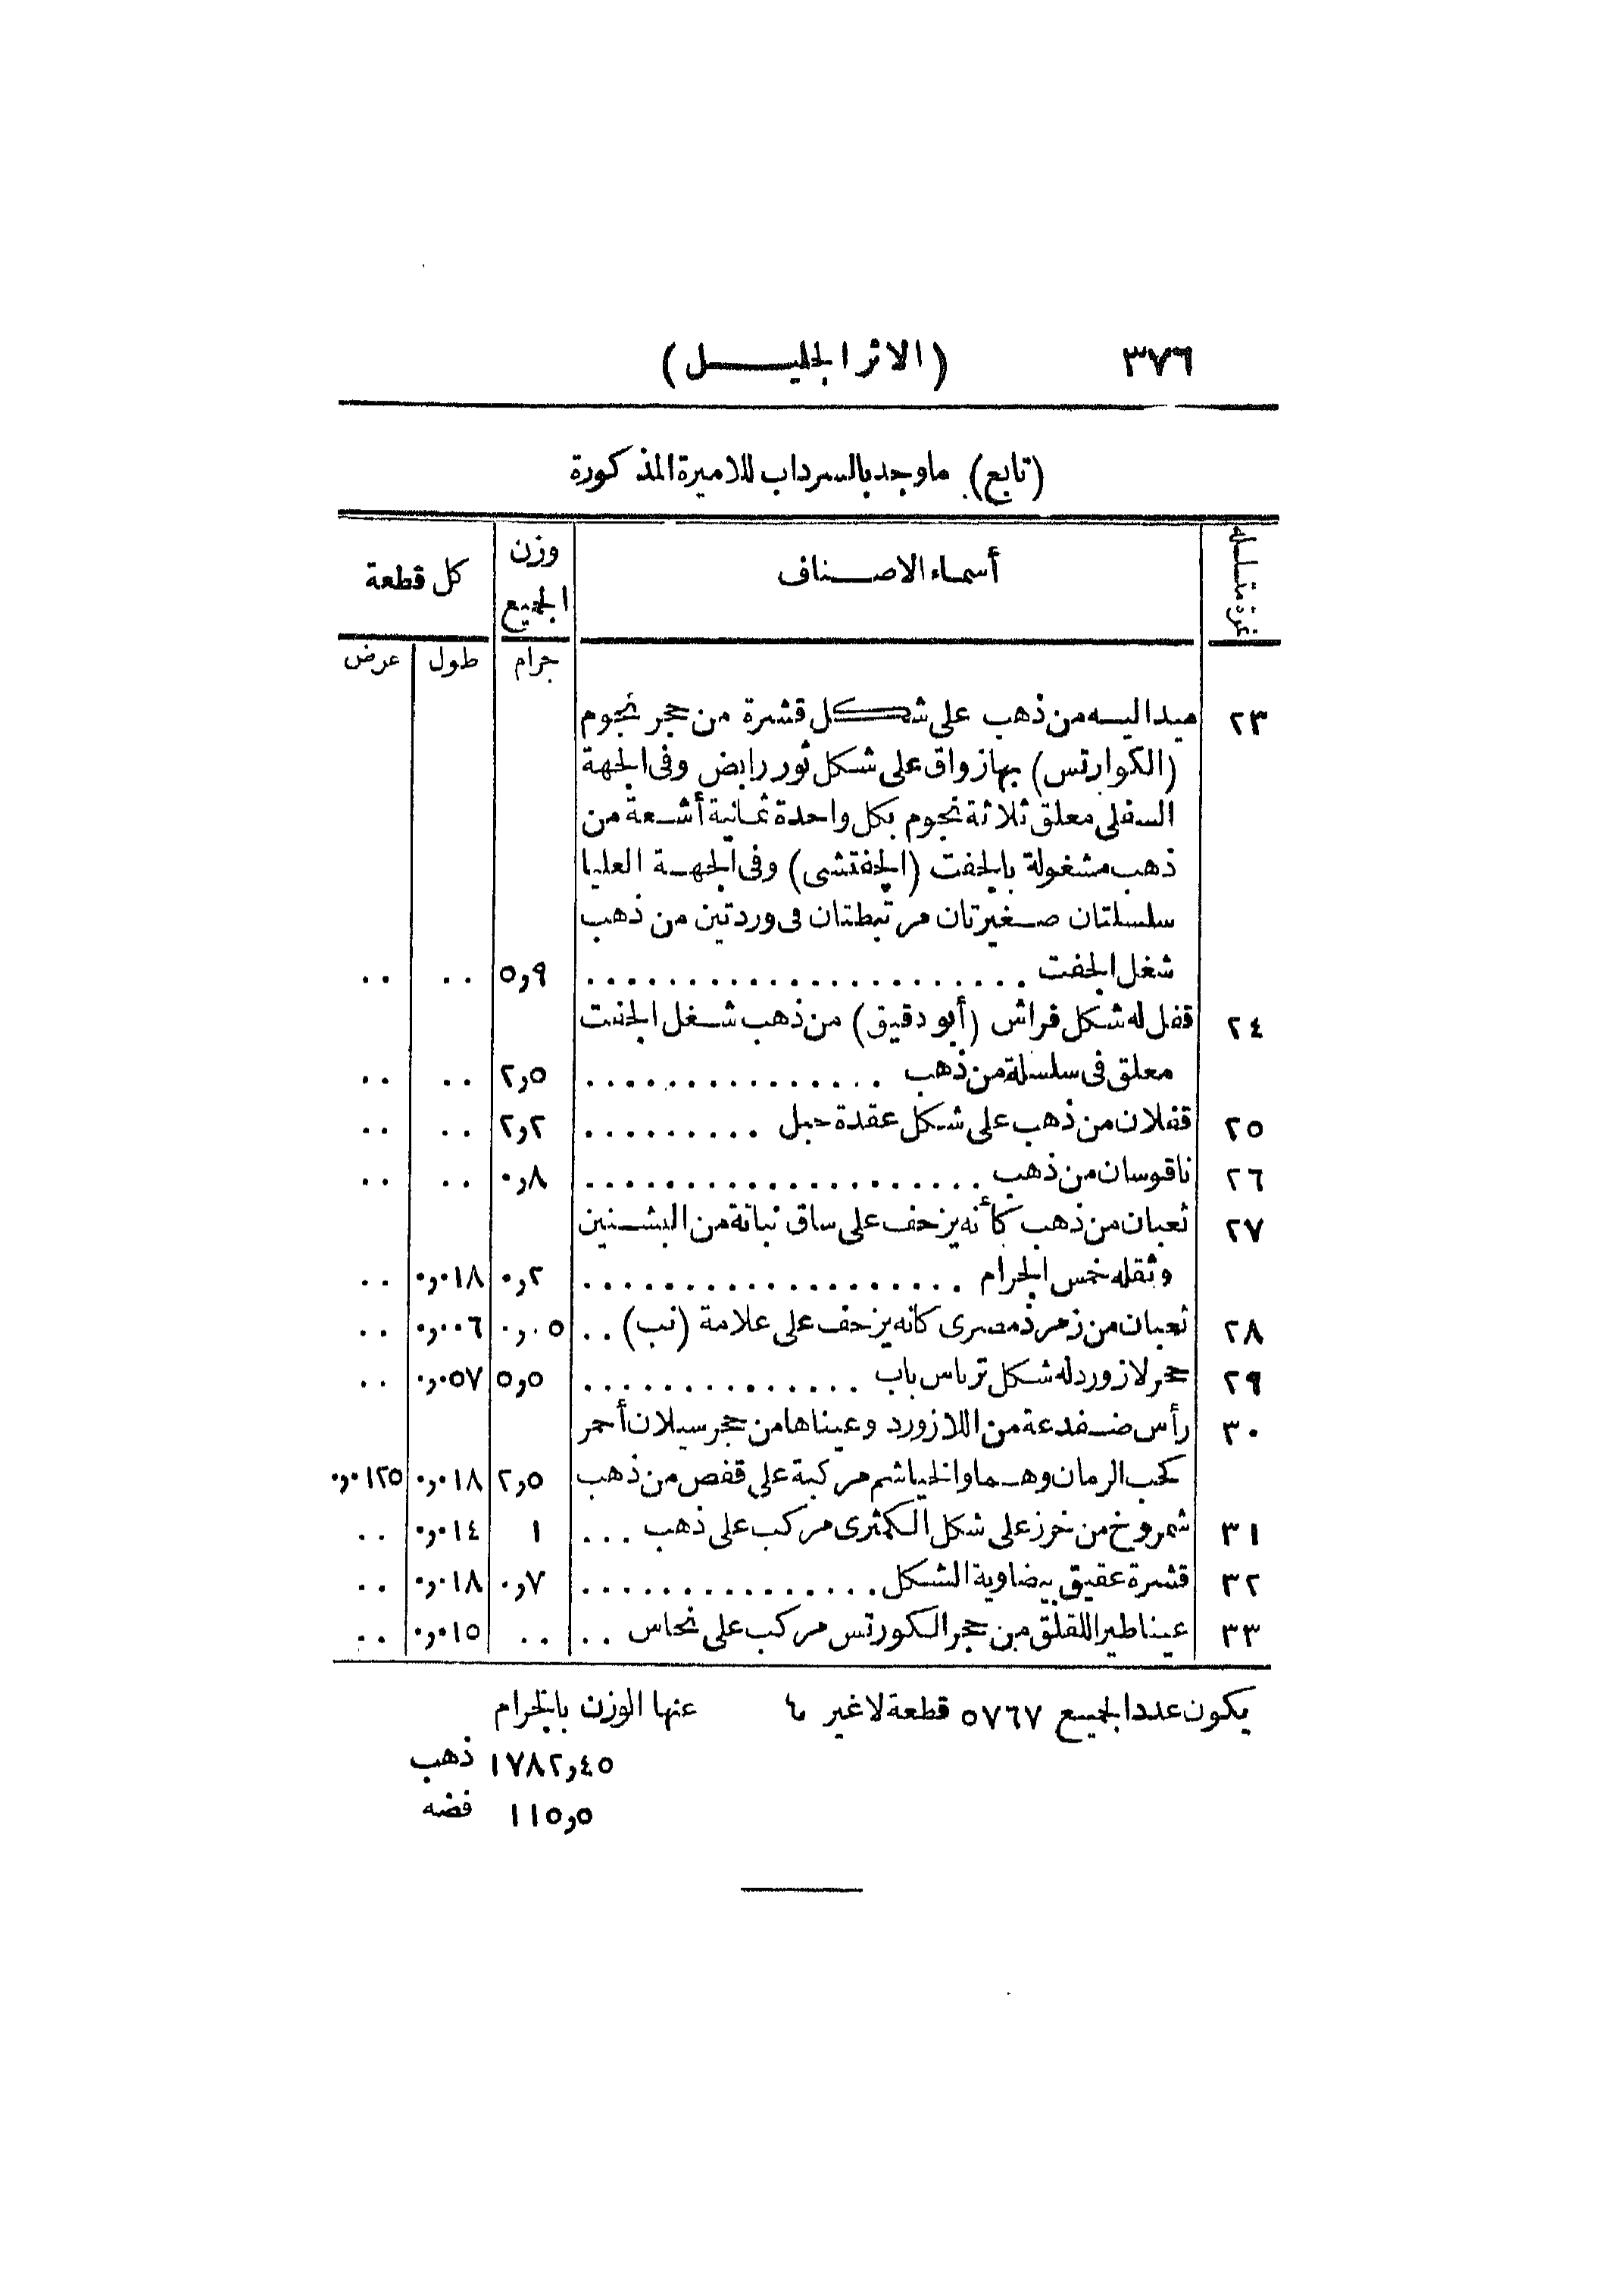 ٣٧٦ (الاثر الجليل)
(تابع) ماوجد بالسرداب للاميرة المذكورة
نمرة متسلسله أسماء الاصناف وزن الجميع كل قطعة
جرام طول عرض
٢٣ ميداليسه من ذهب على شكل قشرة من حجر نجوم
(الكوارتس) بها زواق على شكل ثور رابض وفى الجهة
السفلى معلق ثلاثة نجوم بكل واحدة ثمانية أشعة من
ذهب مشغولة بالجفت (الجفتشى) وفى الجهة العليا
سلسلتان صغيرتان مرتبطتان فى وردتين من ذهب
شغل الجفت ...................... ٥,٩ .. ..
٢٤ قفل له شكل فراش (أبو دقيق) من ذهب شغل الجفت
معلق فى سلسلة من ذهب ............... ٢,٥ .. ..
٢٥ قفلان من ذهب على شكل عقدة حبل ......... ٢,٢ .. ..
٢٦ ناقوسان من ذهب .................... ٠,٨ .. ..
٢٧ ثعبان من ذهب كأنه يزحف على ساق نباتة من البشنين
وثقله خمس الجرام ................... ٠,٢ ٠,٠١٨ ..
٢٨ ثعبان من زمرذ مصرى كانه يزحف على علامة (نب) .. ٠,٠٥ ٠,٠٠٦ ..
٢٩ حجر لازورد له شكل ترباس باب .............. ٥,٥ ٠,٠٥٧ ..
٣٠ رأس ضفدعة من اللازورد وعيناها من حجر سيلان أحمر
كحب الرمان وهما والخياشم مركبة على قفص من ذهب ٢,٥ ٠,٠١٨ ٠,٠١٢٥
٣١ شمروخ من خرز على شكل الكمثرى مركب على ذهب ... ١ ٠,٠١٤ ..
٣٢ قشرة عقيق بيضاوية الشكل ............... ٠,٧ ٠,٠١٨ ..
٣٣ عينا طير اللقلق من حجر الكورتس مركب على نحاس .. .. ٠,٠١٥ ..
يكون عدد الجميع ٥٧٦٧ قطعة لاغير عنها الوزن بالجرام
١٧٨٢,٤٥ ذهب
١١٥,٥ فضه